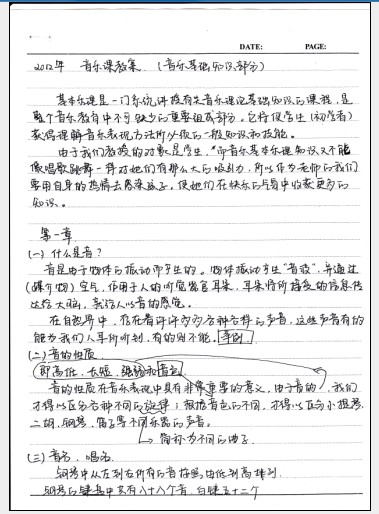 DATE: PAGE:
2012年 音乐课教案.（音乐基础知识部分）
基本乐理是一门系统讲授有关音乐理论基础知识的课程，是
整个音乐教育中不可缺少的重要组成部分。它将使学生（初学者）
获得理解音乐表现方法所必做的一般知识和技能。
由于我们教授的对象是学生，而音乐基本乐理知识又不能
像唱歌跳舞一样对他们有那么大的吸引力，所以作为老师的我们
要用自身的热情去感染孩子，使他们在快乐的学习中收获更多的
知识。
第一章
（一）什么是音？
音是由于物体的振动而产生的。物体振动产生"音波"，并通过
（媒介物）空气，作用于人的听觉器官耳朵，耳朵将所接受的信息传
达给大脑，就给人以音的感觉。
在自然界中，存在着许许多多各种各样的声音，这些声音有的
能为我们人耳所听到，有的则不能。举例
（二）音的性质
即高低、长短、强弱和音色
音的性质在音乐表现中具有非常重要的意义，由于音的，我们
才得以区分各种不同的旋律；根据音色的不同，才得以区分小提琴、
二胡、钢琴、笛子等不同乐器的声音。
简称为不同的曲子
（三）音名、唱名
钢琴中从左到右所有的音按照由低到高排列.
钢琴的键盘中共有八十八个音，白键五十二个